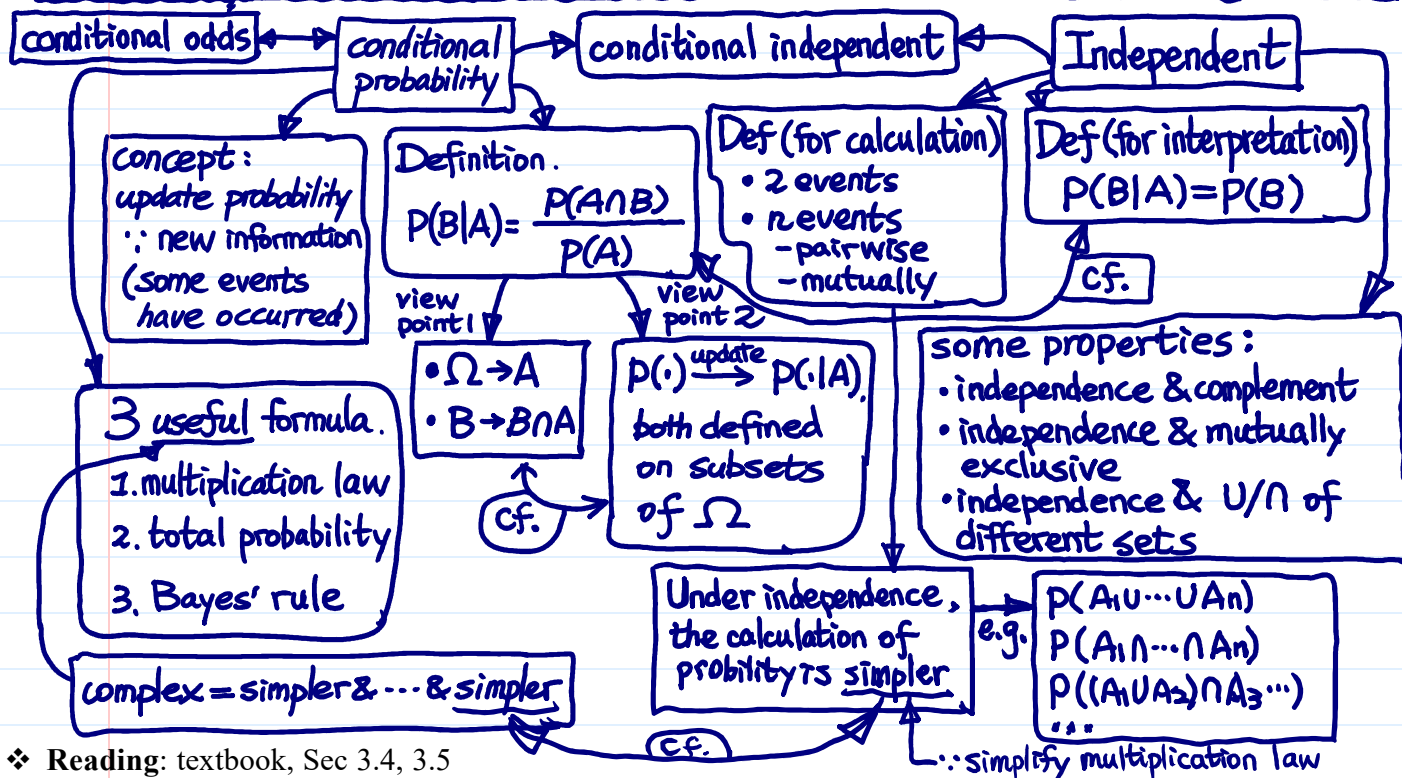 conditional odds
conditional
probability
conditional independent
Independent
concept:
update probability
∵ new information
(some events
have occurred)
Definition.
P(B|A)= P(A∩B)
P(A)
Def (for calculation)
• 2 events
• n events
-pairwise
-mutually
Def (for interpretation)
P(B|A)=P(B)
cf.
view
point 1
view
point 2
• Ω→A
• B→B∩A
cf.
P(·) update→ P(·|A).
both defined
on subsets
of Ω
some properties:
• independence & complement
• independence & mutually
exclusive
• independence & ∪/∩ of
different sets
3 useful formula.
1. multiplication law
2. total probability
3. Bayes' rule
complex = simpler & ··· & simpler
Under independence,
the calculation of
probility is simpler
e.g.
P(A₁∪···∪An)
P(A₁∩···∩An)
P((A₁∪A₂)∩A₃···)
...
cf.
∵ simplify multiplication law
❖ Reading: textbook, Sec 3.4, 3.5